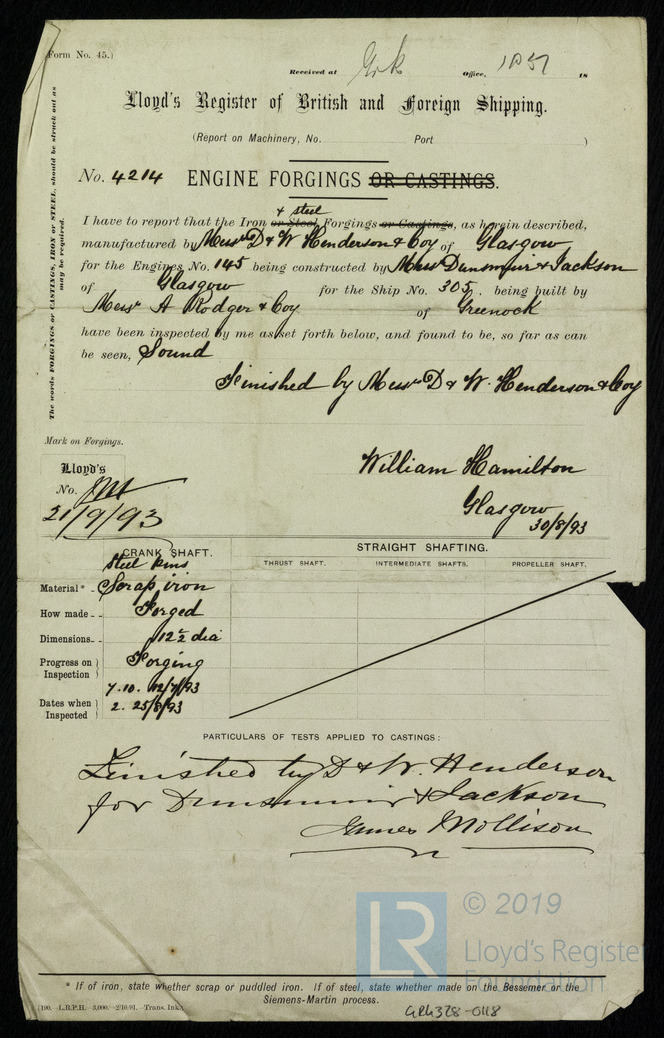 Form No. 45.)
Received at Grk Office, 1257 18
Lloyd's Register of British and Foreign Shipping.
(Report on Machinery, No. Port )
No. 4214 ENGINE FORGINGS OR CASTINGS.
& steel
I have to report that the Iron or Steel Forgings or Castings, as herein described,
manufactured by Messrs D & W Henderson & Coy of Glasgow
for the Engines No. 145 being constructed by Messrs Dunsmuir & Jackson
of Glasgow for the Ship No. 305. being built by
Messrs A Rodger & Coy of Greenock
have been inspected by me as set forth below, and found to be, so far as can
be seen, Sound
Finished by Messrs D & W. Henderson & Coy
The words FORGINGS or CASTINGS, IRON or STEEL, should be struck out as
may be required.
Mark on Forgings.
Lloyd's
No. JM
21/9/93
William Hamilton
Glasgow
30/8/93
CRANK SHAFT. STRAIGHT SHAFTING.
THRUST SHAFT. INTERMEDIATE SHAFTS. PROPELLER SHAFT.
steel pins
Material* Scrap iron
How made Forged
Dimensions 12½ dia
Progress on Inspection Forging
Dates when Inspected 7. 10. 12/7/93
2. 25/8/93
PARTICULARS OF TESTS APPLIED TO CASTINGS:
Finished by D & W. Henderson
for Dunsmuir & Jackson
James Mollison
LR © 2019
Lloyd's Register
Foundation
* If of iron, state whether scrap or puddled iron. If of steel, state whether made on the Bessemer or the
Siemens-Martin process.
[190. -L.R.P.H. -3,000. -2/10/91. -Trans. Ink.]
GRK328-0118